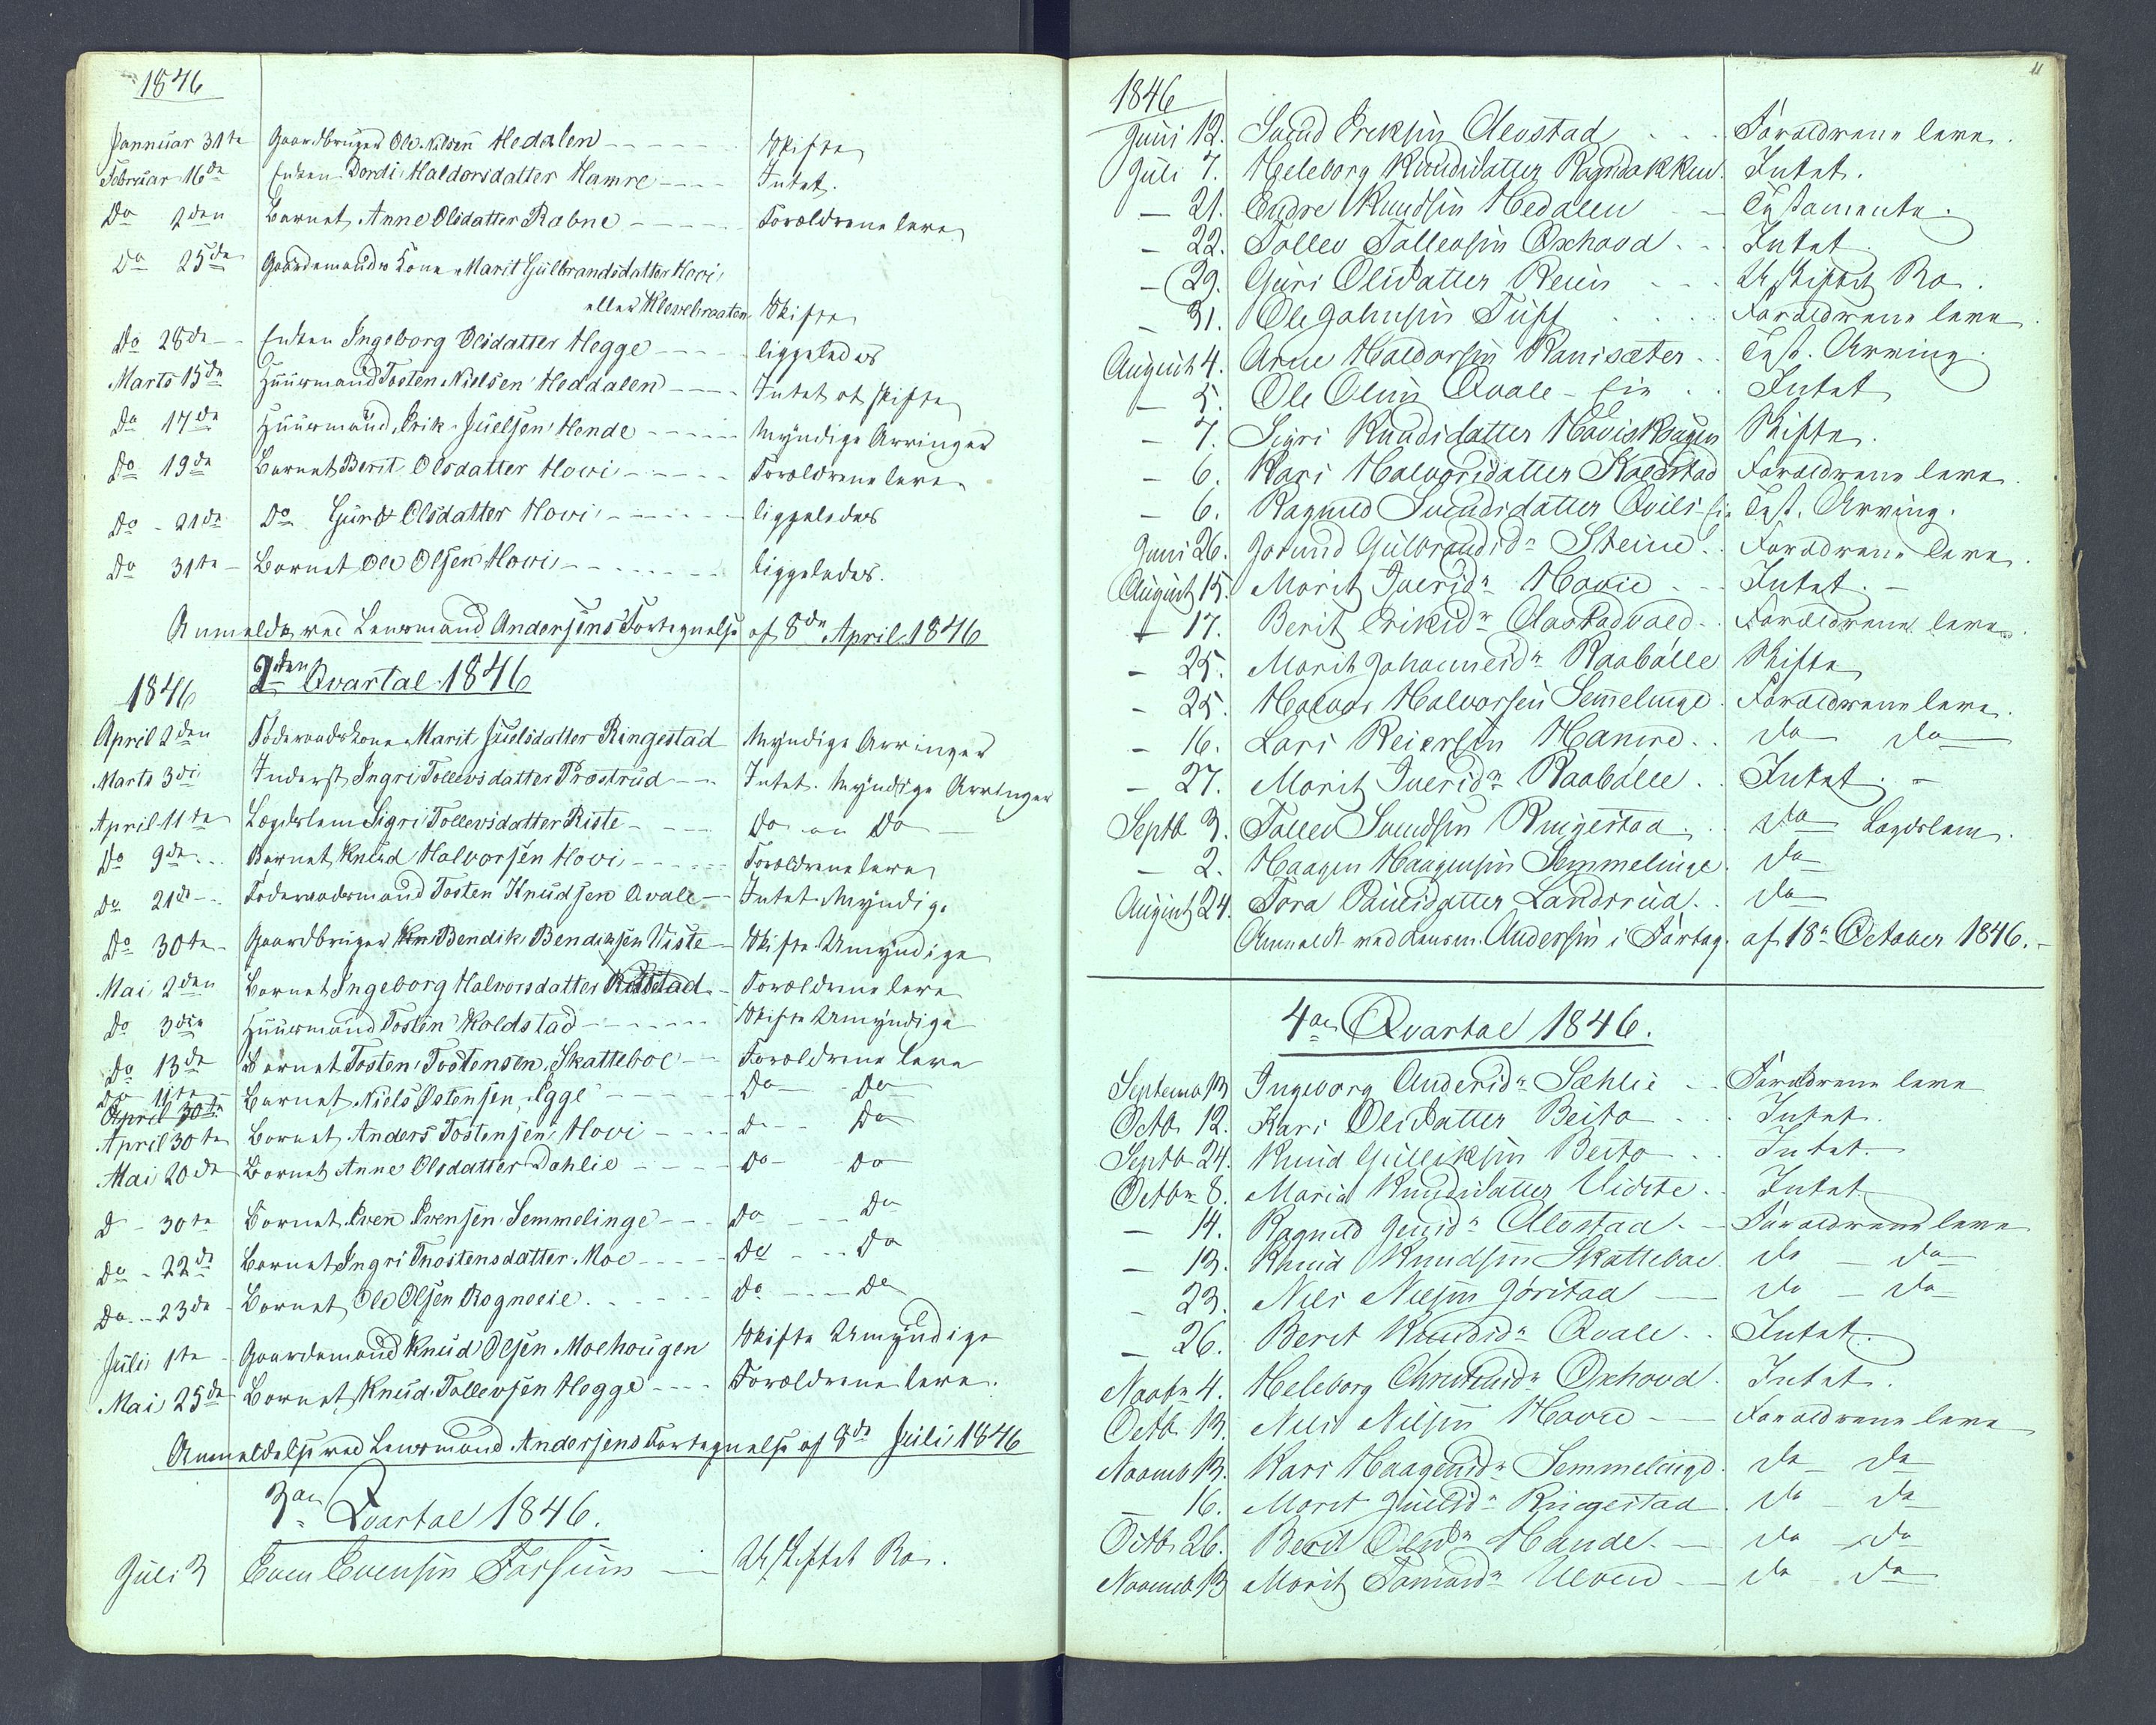 1846
Januuar 31te Gaardbruger Ole Nilsen Hedalen Skifte
Februar 16de Enken Dordi Haldorsdatter Hamre Intet.
Do 2den Barnet Anne Olsdatter Rabne Forældrene leve
Do 25de Gaardmands Kone Marit Gulbrandsdatter Hovi
eller Klevebraaten Skifte
Do 28de Enken Ingeborg Olsdatter Hegge liggeledes
Marts 15de Huusmand Tosten Nielsen Heddalen Intet at skifte
Do 17de Huusmand Erik Juelsen Hende Myndige Arvinger
Do 19de Barnet Berit Olsdatter Hovi Forældrene leve
Do 21de Do Guro Olsdatter Hovi liggeledes
Do 31te Barnet Ole Olsen Hovi liggeledes.
Anmeldt ved Lensmand Andersens Fortegnelse af 8de April 1846
1846 2den Qvartal 1846
April 2den Føderaadskone Marit Juelsdatter Ringestad Myndige Arvinger
Marts 3di Inderst Ingri Tollevsdatter Prostrud Intet. Myndige Arvinger
April 11te Lægdslem Sigri Tollevsdatter Riste Do Do
Do 9de Barnet Knud Halvorsen Hovi Forældrene leve
Do 21de Føderaadsmand Tosten Knudsen Qvale Intet. Myndige
Do 30te Gaardbruger Bendik Bendiksen Viste Skifte Umyndige
Mai 2den Barnet Ingeborg Halvorsdatter Forældrene leve
Do 3die Huusmand Tosten Koldstad Skifte Umyndige
Do 13de Barnet Tosten Tostensen Skatteboe Forældrene leve
Do 11te Barnet Niels Østensen Egge Do Do
April 30te
April 30te Barnet Anders Tostensen Hovi Do Do
Mai 20de Barnet Anne Olsdatter Dahlie Do Do
D 30te Barnet Even Evensen Semmelinge Do Do
Do 22de Barnet Ingri Thostensdatter Moe Do Do
Do 23de Barnet Ole Olsen Rogneeie Do Do
Juli 1te Gaardmand Knud Olsen Moehougen Skifte Umyndige
Mai 25de Barnet Knud Tollevsen Hegge Forældrene leve.
Anmeldelse ved Lensmand Andersens Fortegnelse af 8de Juli 1846
3die Qvartal 1846.
Juli 3 Even Evensen Fossum Uskiftet Bo.
11
1846
Juni 12. Svend Eriksen Olestad Forældrene leve.
Juli 7. Heleborg Knudsdatter Rognsbakken Intet.
21. Endre Knudsen Hedalen Testamente.
22. Tollev Tollevsen Oxhovd Intet
29. Guri Olsdatter Reien Uskiftet Bo.
31. Ole Johnsen Tuff Forældrene leve.
August 4. Arne Haldorsen Ranisæter Test. Arving.
5. Ole Olsen Qvale Eie Intet
7. Sigri Knudsdatter Skifte.
6. Kari Halvorsdatter Koldstad Forældrene leve.
6. Ragnild Svendsdatter Qvils Eie Test. Arving.
Juni 26. Jorund Gulbrandsdr Steine Forældrene leve.
August 15. Marit Iversdr Hovie Intet.
17. Berit Eriksdr Olestadvald Forældrene leve.
25. Marit Johannesdr Raabølle Skifte
25. Halvor Halvorsen Semelinge Forældrene leve.
16. Lars Reiersen Hamre do do
27. Marit Iversdr Raabølle Intet.
Septb 3. Tollev Svendsen Ringestad do Lægdslem.
2. Haagen Haagensen Semmelinge. do
August 24. Tora Paulsdatter Landsrud. do
Anmeldt ved Lensm. Andersen i Forteg. af 18n October 1846.
4de Qvartal 1846.
Septemb 13 Ingeborg Andersdr Sæhlie Forældrene leve
Octb. 12. Kari Olsdatter Beito Intet.
Septb 24. Knud Gulliksen Beito Intet.
Octbr 8. Maria Knudsdatter Vidste Intet
14. Ragnild Jensdr Olestad Forældrene leve
13. Knud Knudsen Skatteboe do do
23. Nils Nilsen Jørstad do do
26. Berit Knudsdr Qvale Intet.
Novbr 4. Heleborg Christensdr Oxhovd Intet.
Octb. 13. Nils Nilsen Hovie Forældrene leve
Novemb 13. Kari Haagensdr Semmelinge do do
16. Marit Juelsdr Ringestad do do
Octb. 26. Berit Olsdr Hande do do
Novemb 13 Marit do do